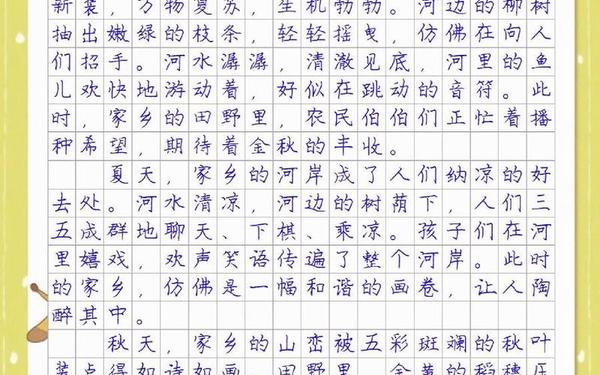 新装，万物复苏，生机勃勃。河边的柳树
抽出嫩绿的枝条，轻轻摇曳，仿佛在向人
们招手。河水潺潺，清澈见底，河里的鱼
儿欢快地游动着，好似在跳动的音符。此
时，家乡的田野里，农民伯伯们正忙着播
种希望，期待着金秋的丰收。
夏天，家乡的河岸成了人们纳凉的好
去处。河水清凉，河边的树荫下，人们三
五成群地聊天、下棋、乘凉。孩子们在河
里嬉戏，欢声笑语传遍了整个河岸。此时
的家乡，仿佛是一幅和谐的画卷，让人陶
醉其中。
秋天，家乡的山峦被五彩斑斓的秋叶
装点得如诗如画。田野里，金黄的稻穗压